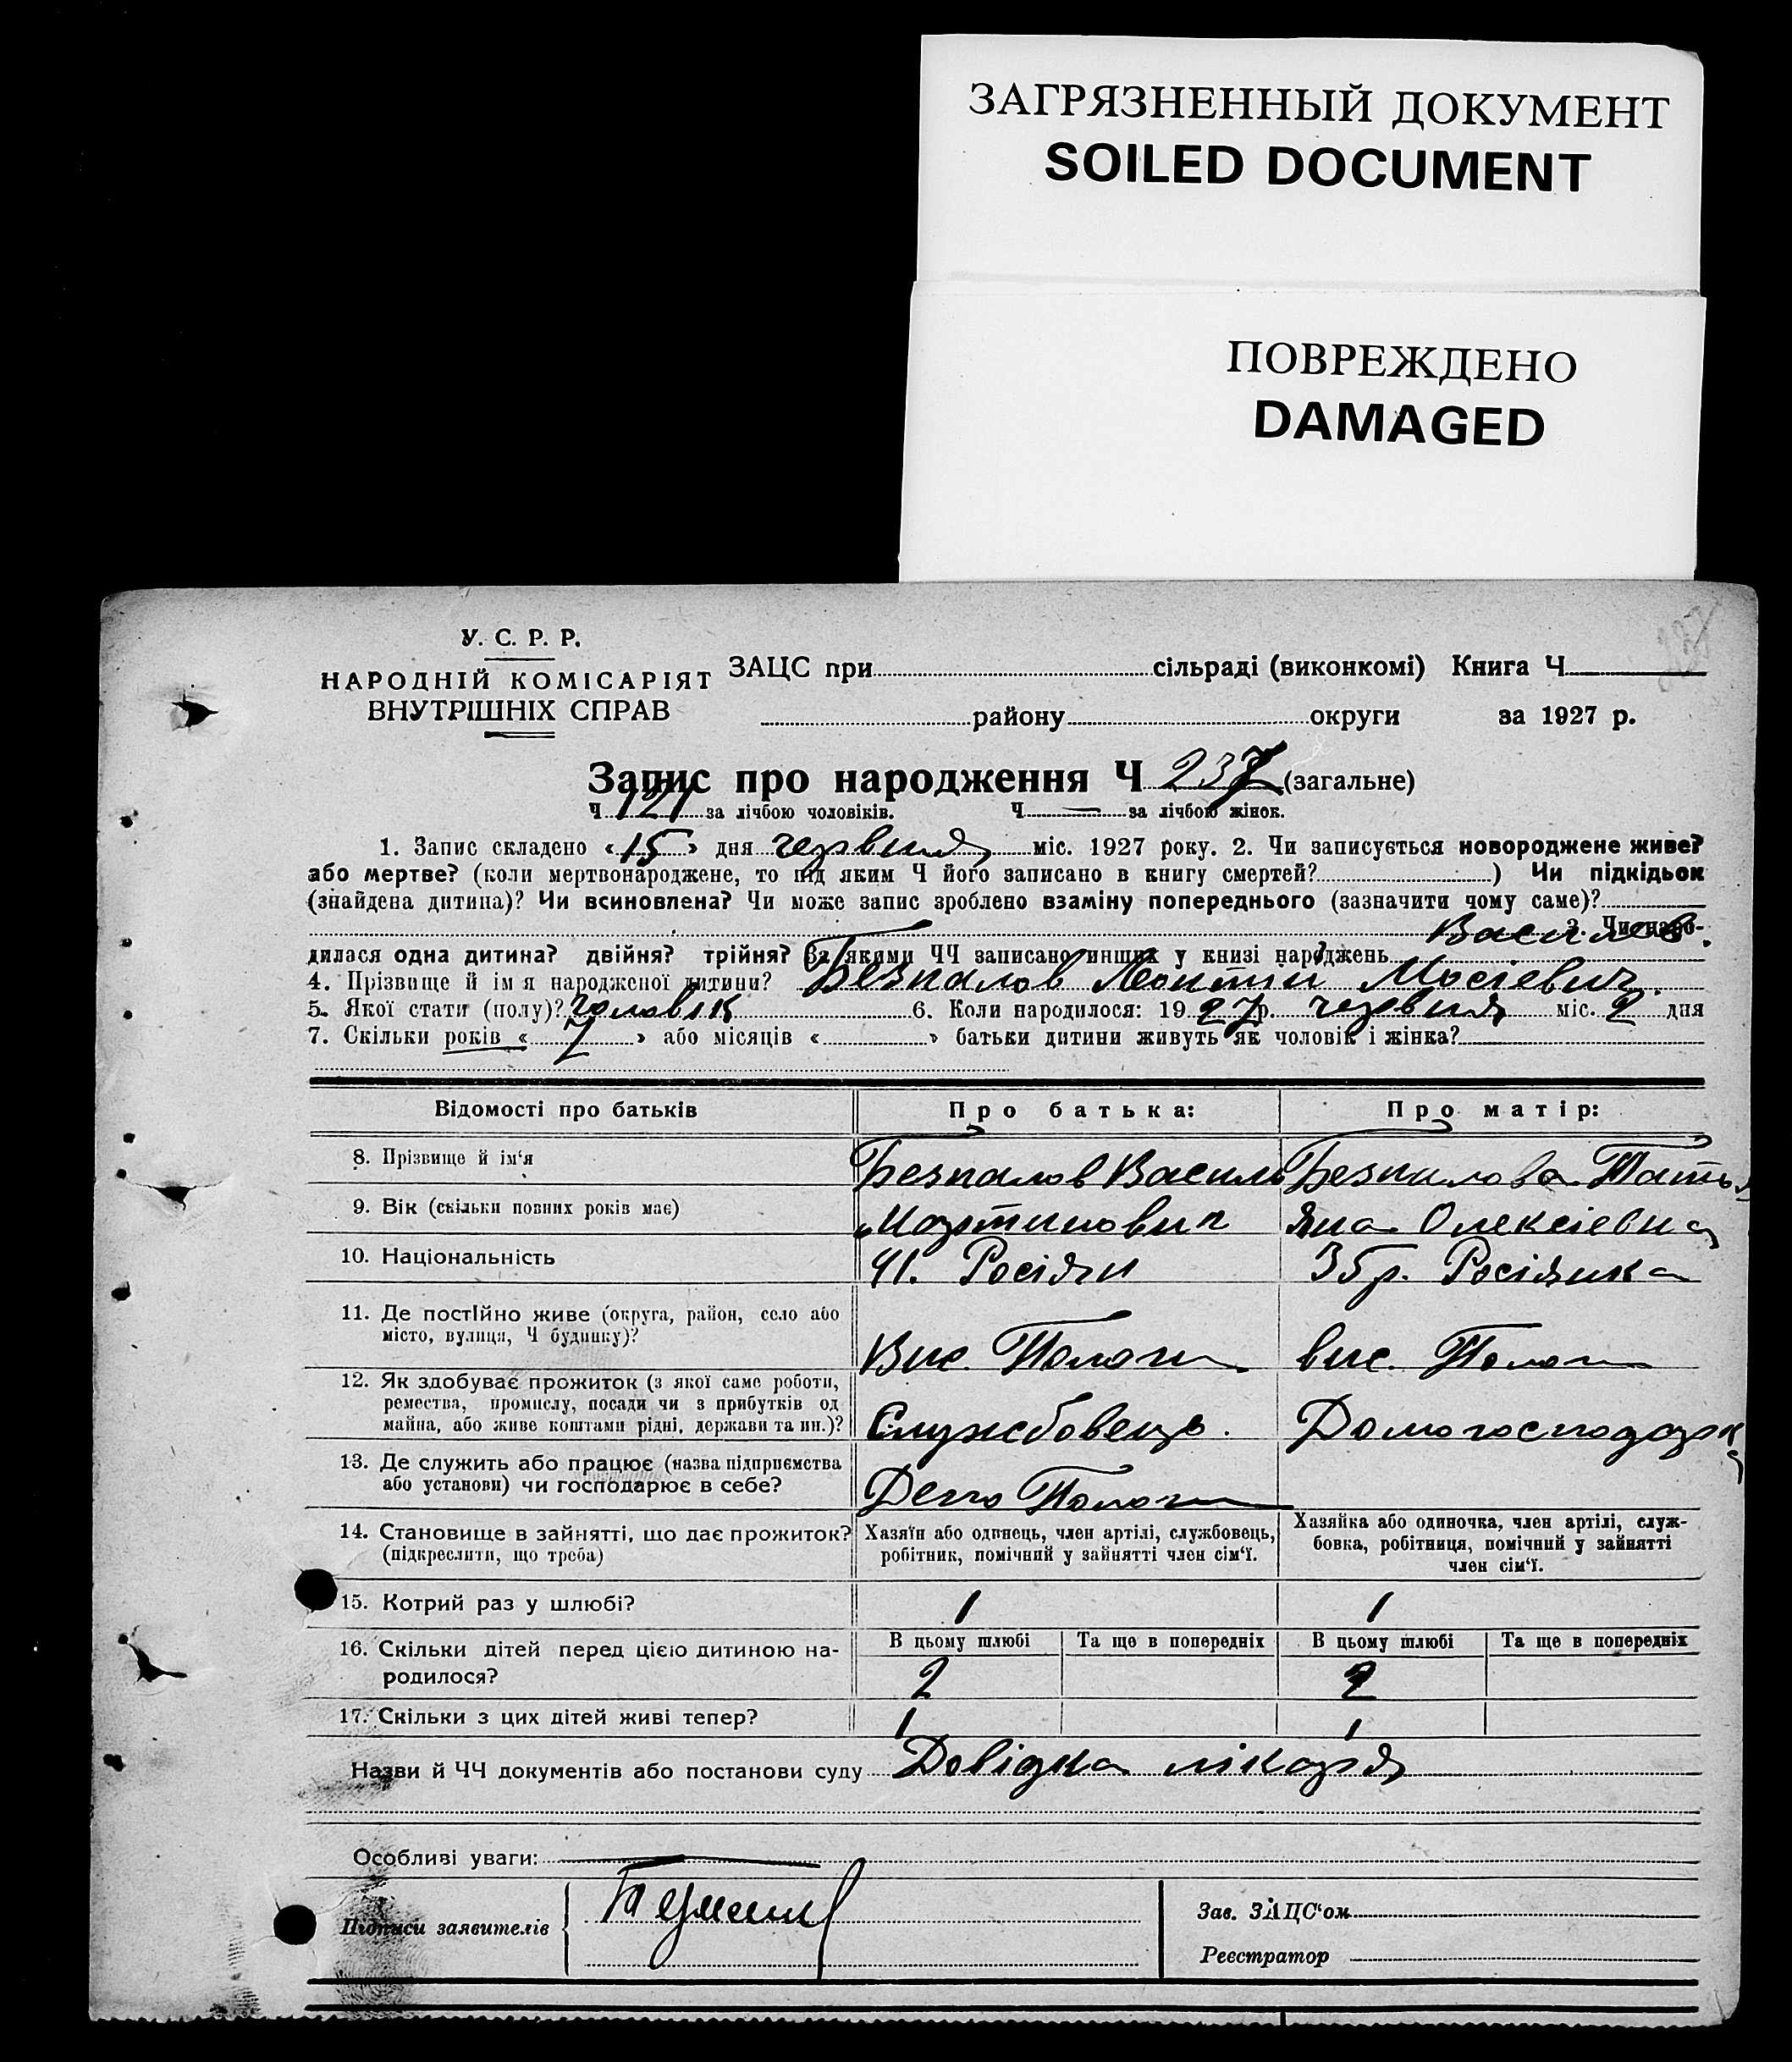 ЗАГРЯЗНЕННЫЙ ДОКУМЕНТ
SOILED DOCUMENT
ПОВРЕЖДЕНО
DAMAGED
У. С. Р. Р.
НАРОДНІЙ КОМІСАРІЯТ
ВНУТРІШНІХ СПРАВ
ЗАЦС при сільраді (виконкомі) Книга Ч
району округи за 1927 р.
Запис про народження Ч 237 (загальне)
Ч 121 за лічбою чоловіків. Ч — за лічбою жінок.
1. Запис складено « 15 » дня червня міс. 1927 року. 2. Чи записується новороджене живе?
або мертве? (коли мертвонароджене, то під яким Ч його записано в книгу смертей? ) Чи підкідьок
(знайдена дитина)? Чи всиновлена? Чи може запис зроблено взаміну попереднього (зазначити чому саме)?
3. Чи наро-
дилася одна дитина? двійня? трійня? За якими ЧЧ записано инших у книзі народжень
4. Прізвище й ім я народженої дитини? Безпалов
5. Якої статі (полу)? чоловік 6. Коли народилося: 19 27 р. червня міс. 2 дня
7. Скільки років « 7 » або місяців « » батьки дитини живуть як чоловік і жінка?
Відомості про батьків Про батька: Про матір:
8. Прізвище й ім‘я Безпалов Василь Безпалова Тать
9. Вік (скільки повних років має) Мартинович яна Олексіевна
10. Національність 41. Росіян 35р. Росіянка
11. Де постійно живе (округа, район, село або
місто, вулиця, Ч будинку)? Вис. Пологи вис. Пологи
12. Як здобуває прожиток (з якої саме роботи,
ремества, промислу, посади чи з прибутків од
майна, або живе коштами рідні, держави та ин.)? Службовець. Домогосподарка
13. Де служить або працює (назва підприємства
або установи) чи господарює в себе? Депо Пологи
14. Становище в зайнятті, що дає прожиток?
(підкреслити, що треба)
Хазяїн або одинець, член артілі, службовець,
робітник, помічний у зайнятті член сім‘ї.
Хазяйка або одиночка, член артілі, служ-
бовка, робітниця, помічний у зайнятті
член сім‘ї.
15. Котрий раз у шлюбі? 1 1
16. Скільки дітей перед цією дитиною на-
родилося?
В цьому шлюбі Та ще в попередніх В цьому шлюбі Та ще в попередніх
2 2
17. Скільки з цих дітей живі тепер? 1 1
Назви й ЧЧ документів або постанови суду Довідка лікаря
Особливі уваги:
Підписи заявителів
Зав. ЗАЦС‘ом
Реєстратор